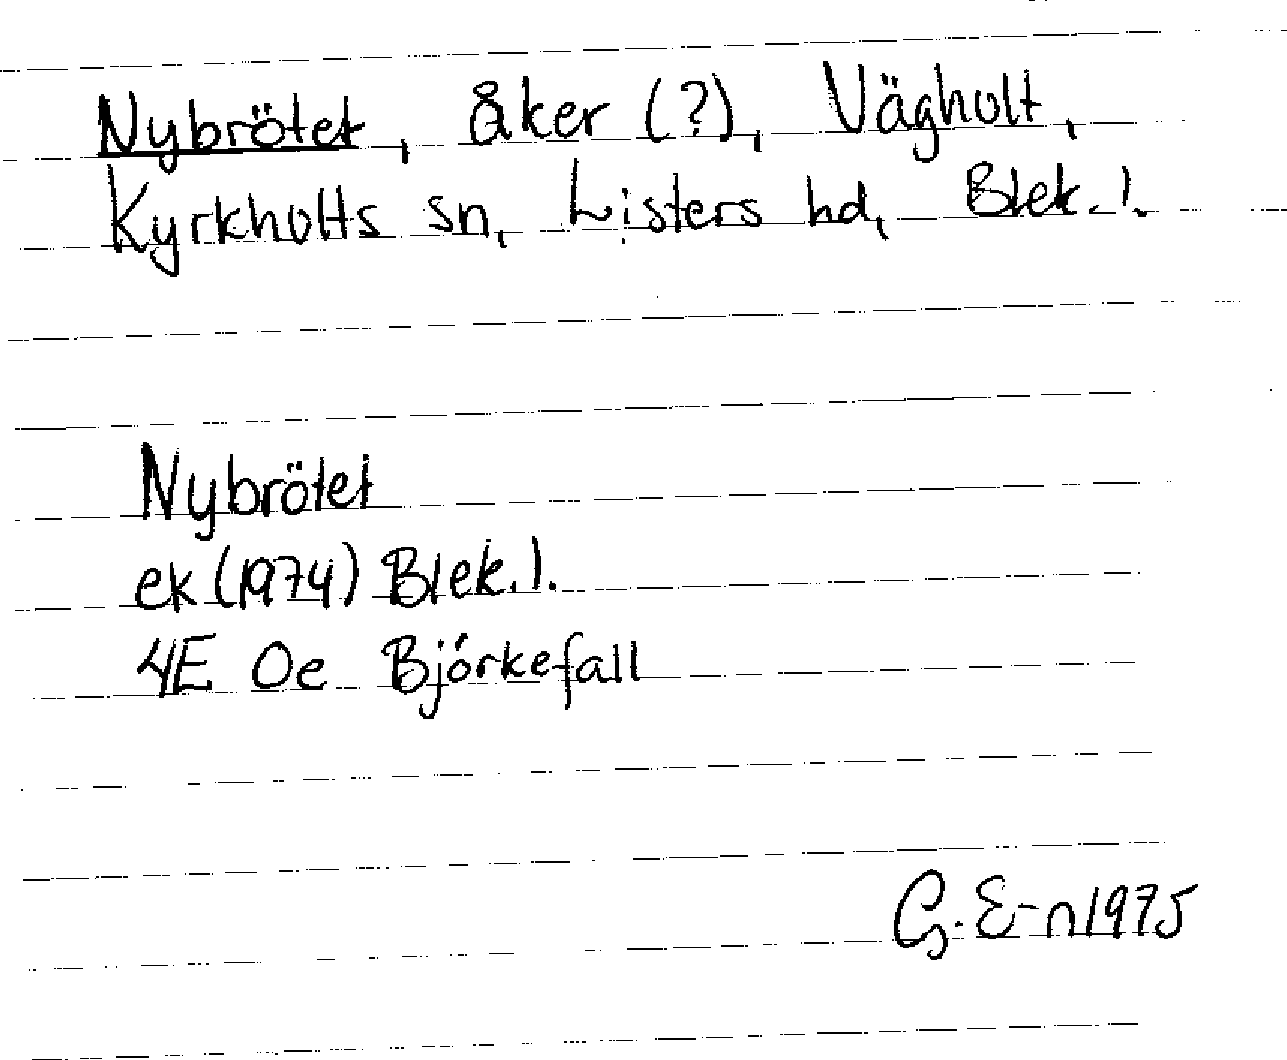 Nybrötet, åker (?), Vägholt,
Kyrkhults sn, Listers hd, Blek. l.
Nybrötet
ek (1974) Blek. l.
4E 0e Björkefall
G. E-n 1975